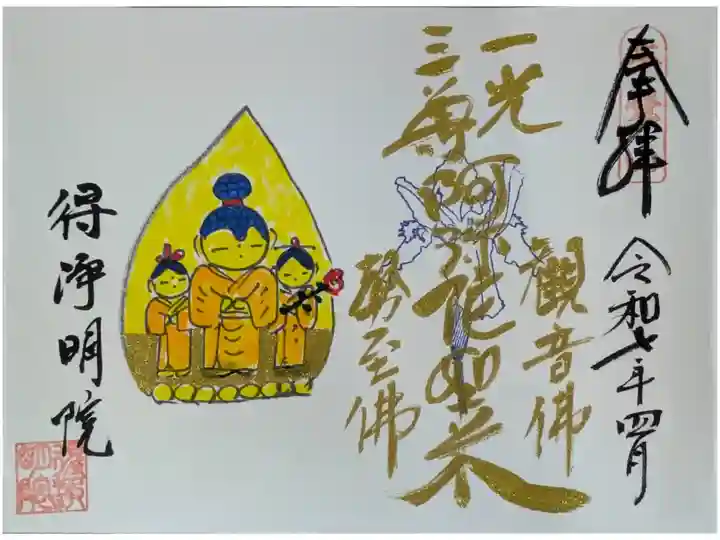 奉拝
令和七年四月
一光
三尊
阿弥陀如来
観音佛
勢至佛
得浄明院